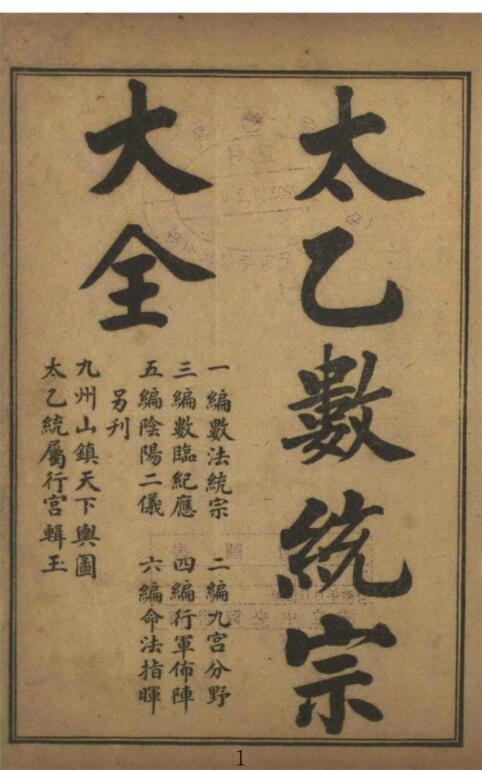 太乙數統宗
大全
一編數法統宗　二編九宮分野
三編數臨紀應　四編行軍佈陣
五編陰陽二儀　六編命法指暉
另刊
九州山鎮天下輿圖
太乙統屬行宮輯玉
1